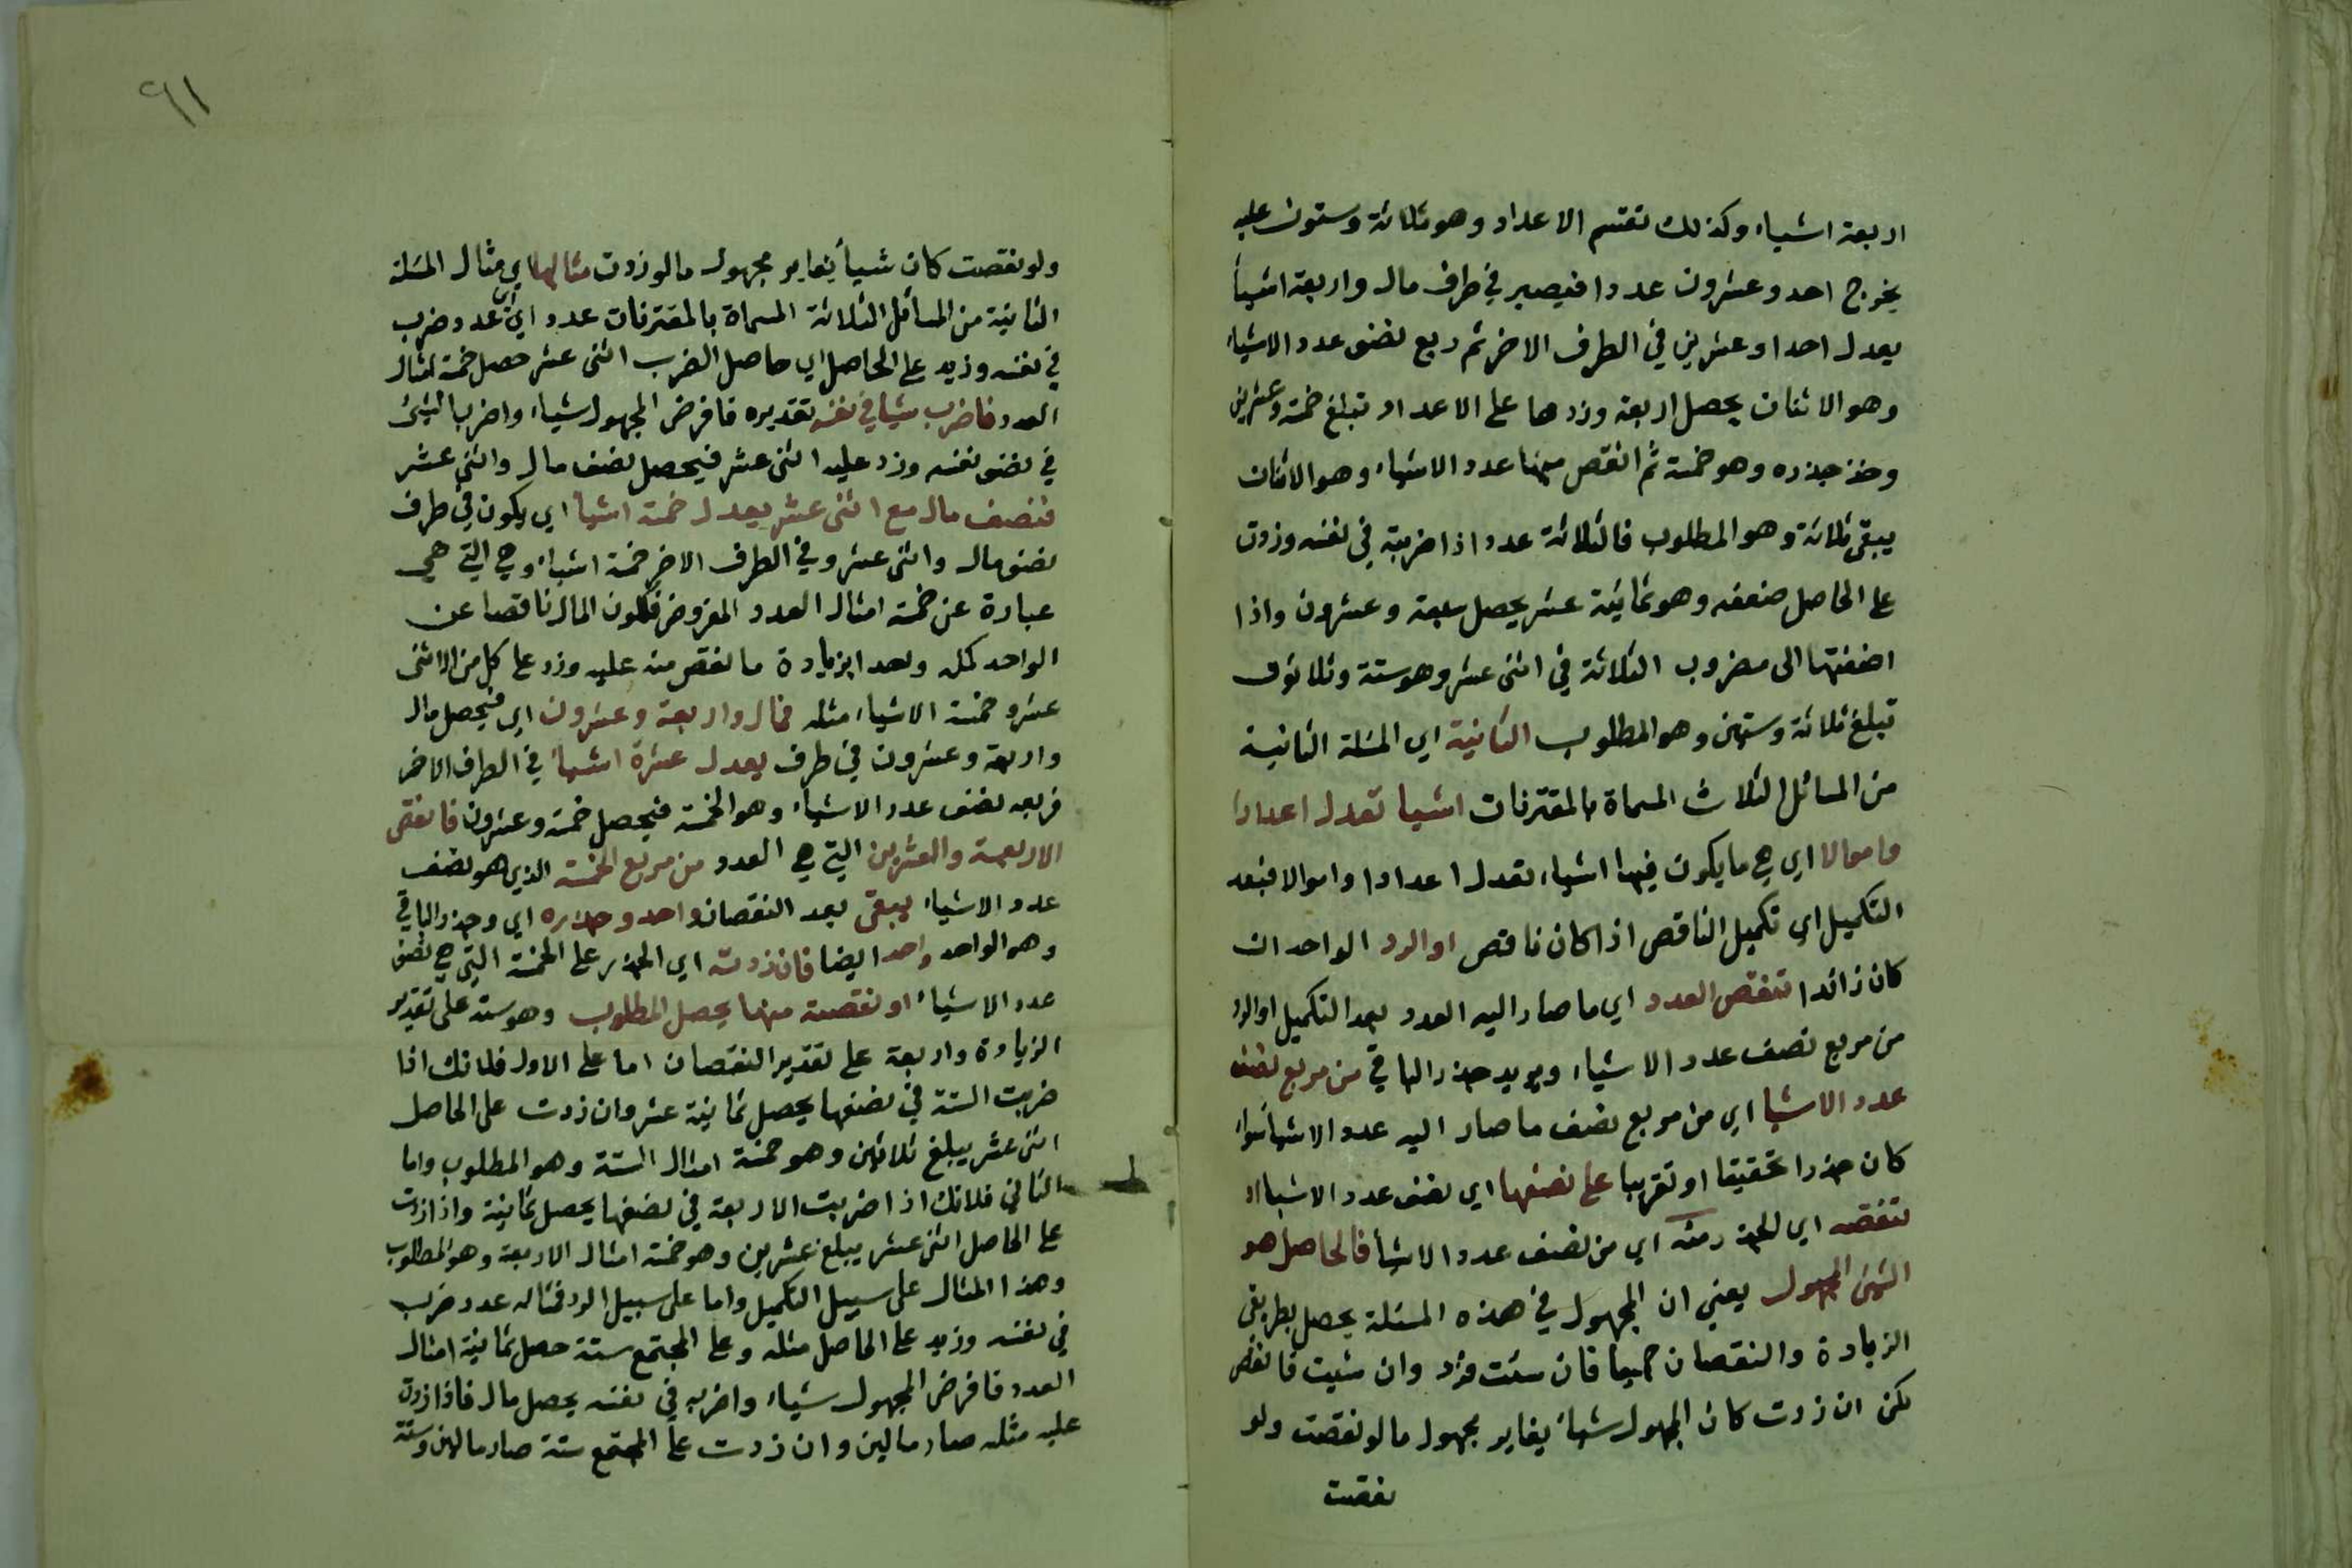 اربعة اشياء وكذلك تقسم الاعداد وهو ثلاثة وستون عليه
يخرج احد وعشرون عددا فيصير في طرف مال واربعة اشيأ
يعدل احدا وعشرين في الطرف الاخر ثم ربع نصف عدد الاشياء
وهو الاثنان يحصل اربعة وزدها على الاعداد تبلغ خمسة وعشرين
وخذ جذره وهو خمسة ثم انقص منها عدد الاشياء وهو الاثنان
يبقى ثلاثة وهو المطلوب فالثلاثة عدد اذا ضربته في نفسه وزدت
على الحاصل ضعفه وهو ثمانية عشر يحصل سبعة وعشرون واذا
اضفتها الى مضروب الثلاثة في اثنى عشر وهو ستة وثلاثون
تبلغ ثلاثة وستين وهو المطلوب الثانية اي المسئلة الثانية
من المسائل الثلاث المسماة بالمقترنات اشيا تعدل اعدادا
واموالا اي هي ما يكون فيها اشياء تعدل اعدادا واموالا فبعد
التكميل اي تكميل الناقص اذا كان ناقص او الرد الواحد ان
كان زائدا تنقص العدد اي ما صار اليه العدد بعد التكميل او الرد
من مربع نصف عدد الاشياء ويزيد جذر الباقي من مربع نصف
عدد الاشيا اي من مربع نصف ما صار اليه عدد الاشيأ سواء
كان جذرا تحقيقا او تقريبا على نصفها اي نصف عدد الاشيا او
تنقصه اي الجذر منه اي من نصف عدد الاشيأ فالحاصل هو
الشئ المجهول يعني ان المجهول في هذه المسئلة يحصل بطريقى
الزيادة والنقصان جميعا فان شئت فزد وان شئت فانقص
لكن ان زدت كان المجهول شيأ يغاير مجهول ما لو نقصت ولو
نقصت
٩١
ولو نقصت كان شيأ يغاير مجهول ما لو زدت مثالها اي مثال المسئلة
الثانية من المسائل الثلاثة المسماة بالمقترنات عدد اي اي عدد ضرب
في نفسه وزيد على الحاصل اي حاصل الضرب اثنى عشر حصل خمسة امثال
العدد فاضرب شيأ في نفسه تقديره فافرض المجهول شياء واضرب الشئ
في نصف نفسه وزد عليه اثنى عشر فيحصل نصف مال واثنى عشر
فنصف مال مع اثنى عشر يعدل خمسة اشيأ اي يكون في طرف
نصف مال واثنى عشر وفي الطرف الاخر خمسة اشياء وهي التي هي
عبارة عن خمسة امثال العدد المفروض فكلون المال ناقصا عن
الواحد كمله وحدا بزيادة ما نقص منه عليه وزد على كل من الاثنى
عشر وخمسة الاشياء مثله فمال واربعة وعشرون اي فيحصل مال
واربعة وعشرون في طرف يعدل عشرة اشياء في الطرف الاخر
فربعه نصف عدد الاشياء وهو الخمسة فيحصل خمسة وعشرون فانقص
الاربعة والعشرين التي هي العدد من مربع الخمسة الذي هو نصف
عدد الاشياء يبقى بعد النقصان واحد وجذره اي وجذر الباقي
وهو الواحد واحد ايضا فان زدته اي الجذر على الخمسة التي هي نصف
عدد الاشياء او نقصته منها يحصل المطلوب وهو ستة على تقدير
الزيادة واربعة على تقدير النقصان اما على الاول فلانك اذا
ضربت الستة في نصفها يحصل ثمانية عشر وان زدت على الحاصل
اثنى عشر يبلغ ثلاثين وهو خمسة امثال الستة وهو المطلوب واما
الثاني فلانك اذا ضربت الاربعة في نصفها يحصل ثمانية واذا زدت
على الحاصل اثنى عشر يبلغ عشرين وهو خمسة امثال الاربعة وهو المطلوب
وهذا المثال على سبيل التكميل واما على سبيل الرد فمثاله عدد ضرب
في نفسه وزيد على الحاصل مثله وعلى المجتمع ستة حصل ثمانية امثال
العدد فافرض المجهول شياء واضربه في نفسه يحصل مال فاذا زدت
عليه مثله صار مالين وان زدت على المجتمع ستة صار مالين وستة